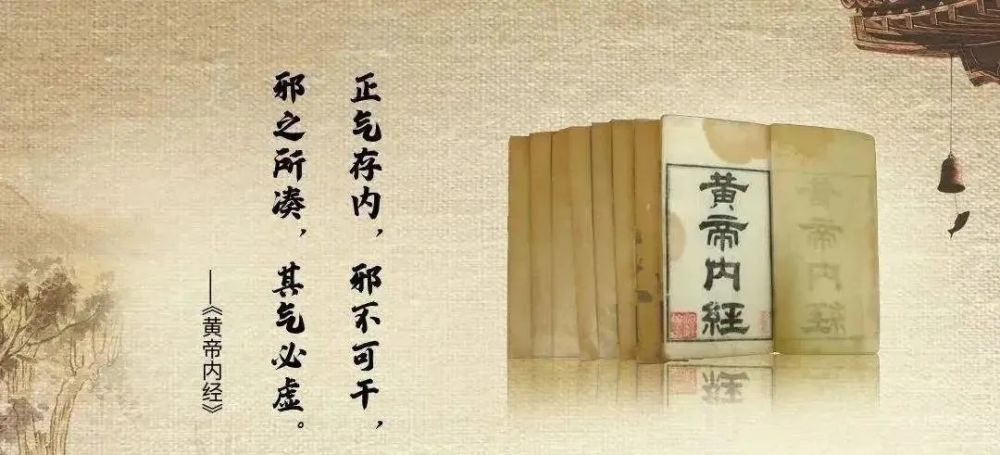 正气存内，邪不可干，
邪之所凑，其气必虚。
——《黄帝内经》
黄帝内经